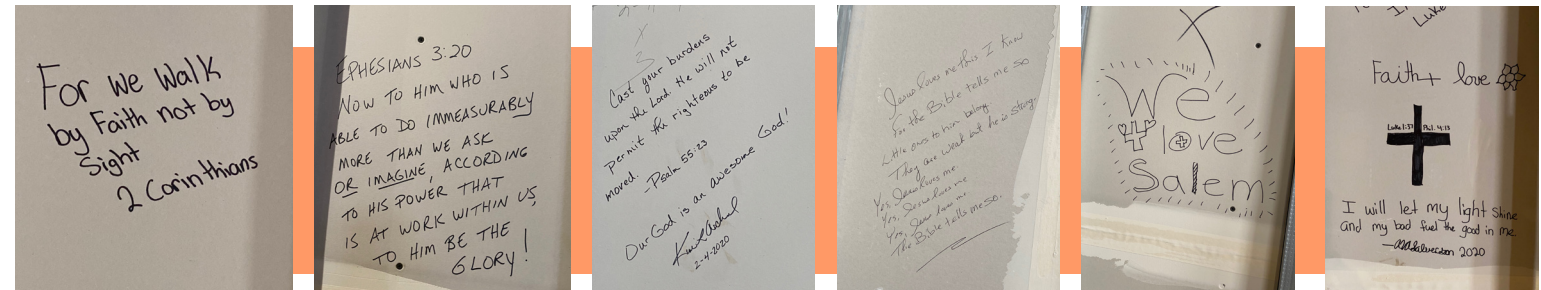 For we walk
by Faith not by
Sight
2 Corinthians
EPHESIANS 3:20
NOW TO HIM WHO IS
ABLE TO DO IMMEASURABLY
MORE THAN WE ASK
OR IMAGINE, ACCORDING
TO HIS POWER THAT
IS AT WORK WITHIN US,
TO HIM BE THE
GLORY!
Cast your burdens
upon the Lord. He will not
permit the righteous to be
moved.
-Psalm 55:23
Our God is an awesome God!
2-4-2020
Jesus loves me this I know
For the Bible tells me so
Little ones to him belong.
They are weak but he is strong.
Yes, Jesus loves me
Yes, Jesus loves me
Yes, Jesus loves me
The Bible tells me so.
We
love
Salem
Luke
Faith + love
Luke 1:37 Phil. 4:13
I will let my light shine
and my bad fuel the good in me
2020